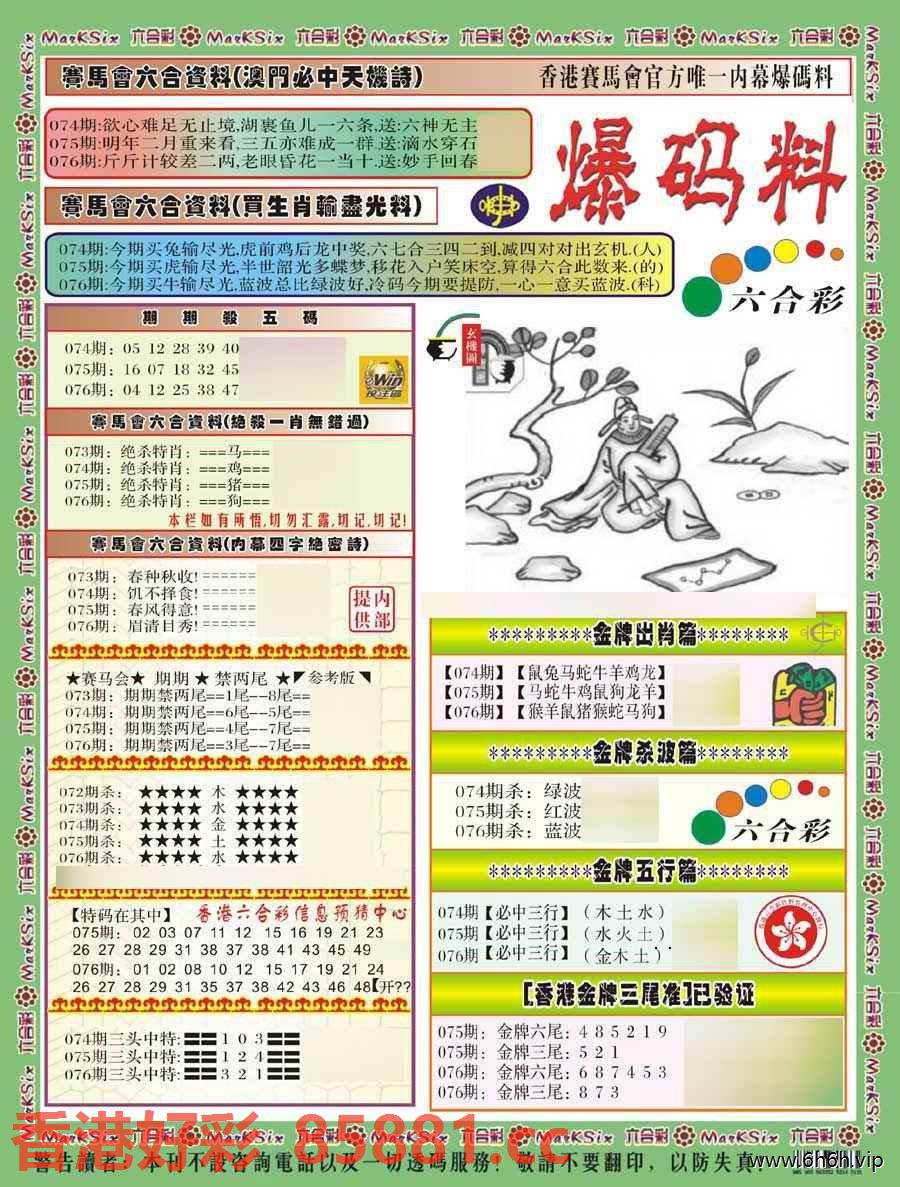 MarKSix 六合彩 MarKSix 六合彩 MarKSix 六合彩 MarKSix 六合彩 MarKSix 六合彩
賽馬會六合資料(澳門必中天機詩)
香港賽馬會官方唯一内幕爆碼料
074期:欲心难足无止境,湖裹鱼儿一六条,送:六神无主
075期:明年二月重来看,三五亦难成一群,送:滴水穿石
076期:斤斤计较差二两,老眼昏花一当十,送:妙手回春
爆码料
賽馬會六合資料(買生肖輸盡光料)
074期:今期买兔输尽光,虎前鸡后龙中奖,六七合三四二到,减四对对出玄机.(人)
075期:今期买虎输尽光,半世韶光多蝶梦,移花入户笑床空,算得六合此数来.(的)
076期:今期买牛输尽光,蓝波总比绿波好,冷码今期要提防,一心一意买蓝波.(科)
六合彩
期期殺五碼
074期: 05 12 28 39 40
075期: 16 07 18 32 45
076期: 04 12 25 38 47
Win
投注區
玄機圖
賽馬會六合資料(絕殺一肖無錯過)
073期: 绝杀特肖: ===马===
074期: 绝杀特肖: ===鸡===
075期: 绝杀特肖: ===猪===
076期: 绝杀特肖: ===狗===
本栏如有所悟,切勿汇露,切记,切记!
賽馬會六合資料(内幕四字絕密詩)
073期: 春种秋收!======
074期: 饥不择食!======
075期: 春风得意!======
076期: 眉清目秀!======
内部提供
★赛马会★ 期期 ★ 禁两尾 ★◤参考版◥
073期: 期期禁两尾==1尾--8尾==
074期: 期期禁两尾==6尾--5尾==
075期: 期期禁两尾==4尾--7尾==
076期: 期期禁两尾==3尾--7尾==
072期杀: ★★★★ 木 ★★★★
073期杀: ★★★★ 水 ★★★★
074期杀: ★★★★ 金 ★★★★
075期杀: ★★★★ 土 ★★★★
076期杀: ★★★★ 水 ★★★★
【特码在其中】 香港六合彩信息预猜中心
075期: 02 03 07 11 12 15 16 19 21 23
26 27 28 29 31 38 37 38 41 43 45 49
076期: 01 02 08 10 12 15 17 19 21 24
26 27 28 29 31 35 37 38 42 43 46 48【开??
074期三头中特:☰☰103☰☰
075期三头中特:☰☰124☰☰
076期三头中特:☰☰321☰☰
*********金牌出肖篇********
【074期】【鼠兔马蛇牛羊鸡龙】
【075期】【马蛇牛鸡鼠狗龙羊】
【076期】【猴羊鼠猪猴蛇马狗】
*********金牌杀波篇********
074期杀: 绿波
075期杀: 红波
076期杀: 蓝波
六合彩
*********金牌五行篇********
074期【必中三行】(木土水)
075期【必中三行】(水火土)
076期【必中三行】(金木土)
[香港金牌三尾准]已验证
075期: 金牌六尾: 4 8 5 2 1 9
075期: 金牌三尾: 5 2 1
076期: 金牌六尾: 6 8 7 4 5 3
076期: 金牌三尾: 8 7 3
香港好彩 85881.cc
MarKSix 六合彩 MarKSix 六合彩 MarKSix 六合彩 MarKSix 六合彩 MarKSix 六合彩
警告讀者: 本刊不設咨詢電話以及一切透碼服務! 敬請不要翻印, 以防失真!
www.6h6h.vip